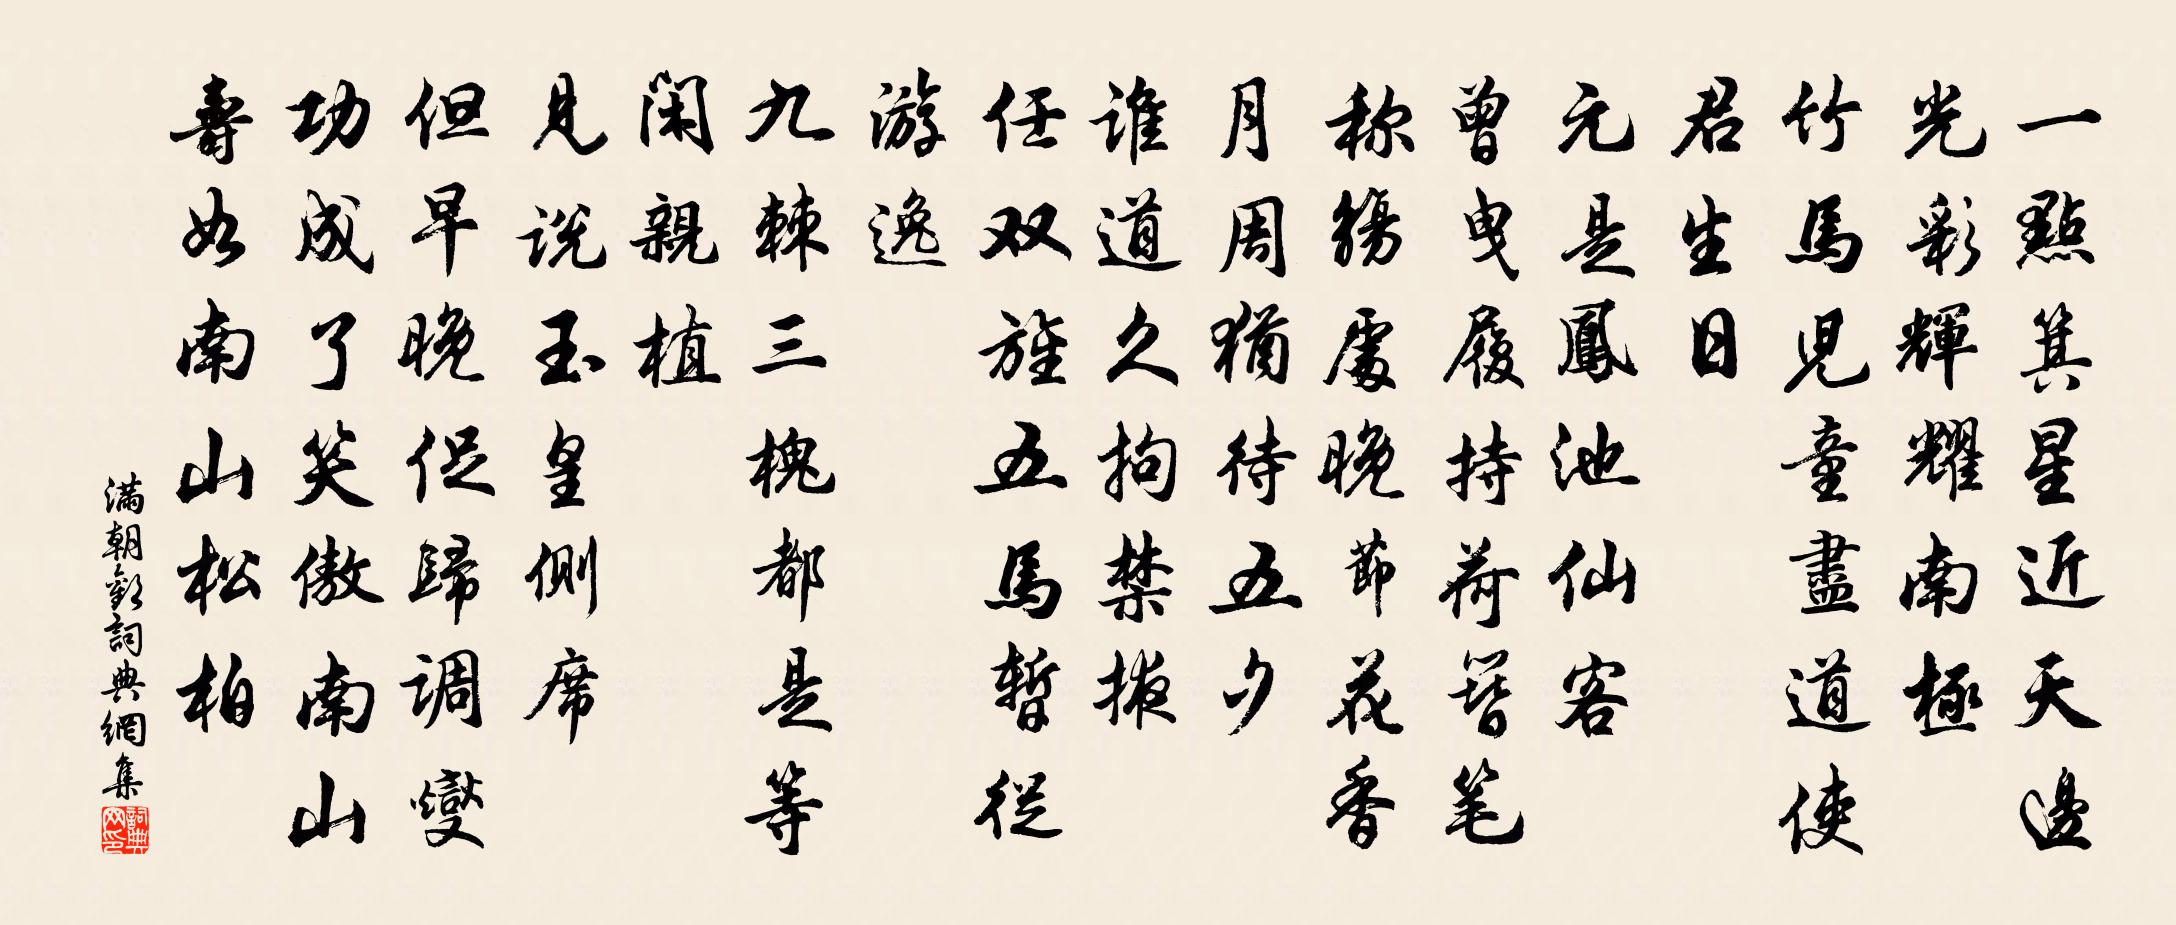 一點箕星近天邊
光彩輝耀南極
竹馬児童盡道使
君生日
元是鳳池仙客
曽曳履持荷簪笔
称觴處晚莭花香
月周猶待五夕
谁道久拘禁掖
任双旌五馬暫從
游逸
九棘三槐都是等
闲親植
見说玉皇側席
但早晚促歸调燮
功成了笑傲南山
壽如南山松柏
满朝歡詞典網集